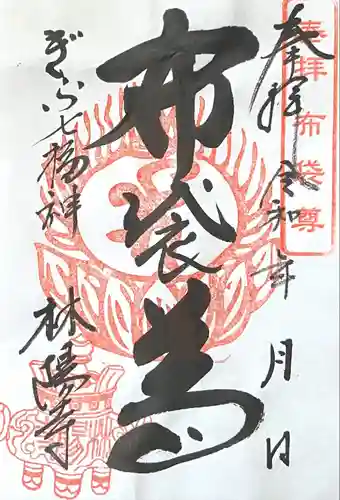 奉拝 令和 年 月 日
奉拝布袋尊
布袋尊
ぎふ七福神
林陽寺